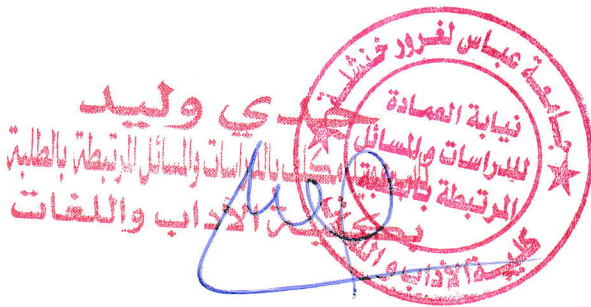 جامعة عباس لغرور خنشلة
نيابة العمادة
للدراسات والمسائل
المرتبطة بالطلبة
كلية الآداب و
وليد
بالدراسات والمسائل المرتبطة بالطلبة
الآداب واللغات